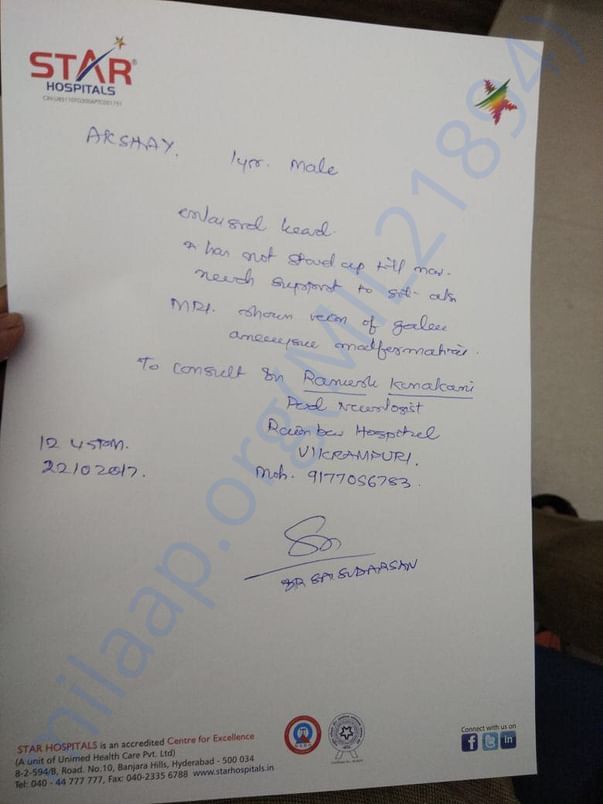 STAR
HOSPITALS
AKSHAY. 1yr. Male
enlarged head.
has not stood up till now.
needs support to sit
MRI. shown vein of galen
aneurysm malformation.
To consult Dr Ramesh Konakani
Ped Neurologist
Rainbow Hospital
VIKRAMPURI.
Mob. 9177056783.
12 45pm.
22102017.
DR SAI SUDARSAN
STAR HOSPITALS is an accredited Centre for Excellence
(A unit of Unimed Health Care Pvt. Ltd)
8-2-594/B, Road. No.10, Banjara Hills, Hyderabad - 500 034
Tel: 040 - 44 777 777, Fax: 040-2335 6788 www.starhospitals.in
Connect with us on
f in
milaap.org(Mill_218941)